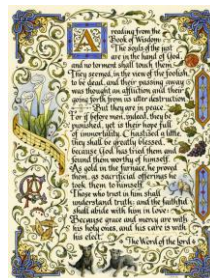 A reading from the
Book of Wisdom:
The souls of the just
are in the hand of God,
and no torment shall touch them.
They seemed, in the view of the foolish,
to be dead; and their passing away
was thought an affliction and their
going forth from us utter destruction.
But they are in peace.
For if before men, indeed, they be
punished, yet is their hope full
of immortality. Chastised a little,
they shall be greatly blessed,
because God has tried them and
found them worthy of himself.
As gold in the furnace, he proved
them, as sacrificial offerings he
took them to himself.
Those who trust in him shall
understand truth; and the faithful
shall abide with him in love:
Because grace and mercy are with
his holy ones, and his care is with
his elect.
The Word of the Lord